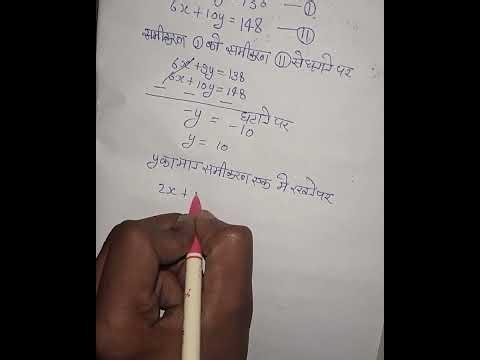 6x + 10y = 148 — II
समीकरण I को समीकरण II से घटाने पर
6x + 9y = 138
6x + 10y = 148
घटाने पर
-y = -10
y = 10
y का मान समीकरण एक में रखने पर
2x +